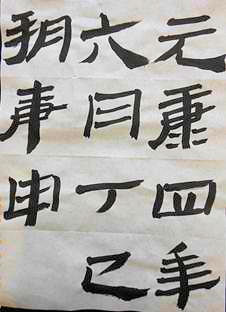 元康四年
六月丁巳
朔庚申